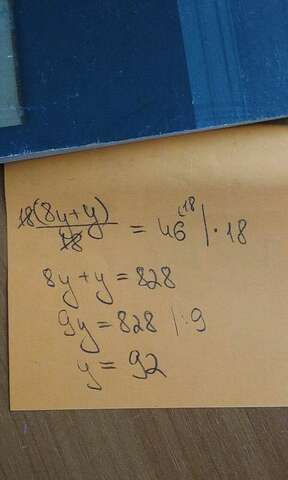 18(8y+y)
18 = 46 (18 |·18
8y+y=828
9y=828 |:9
y=92